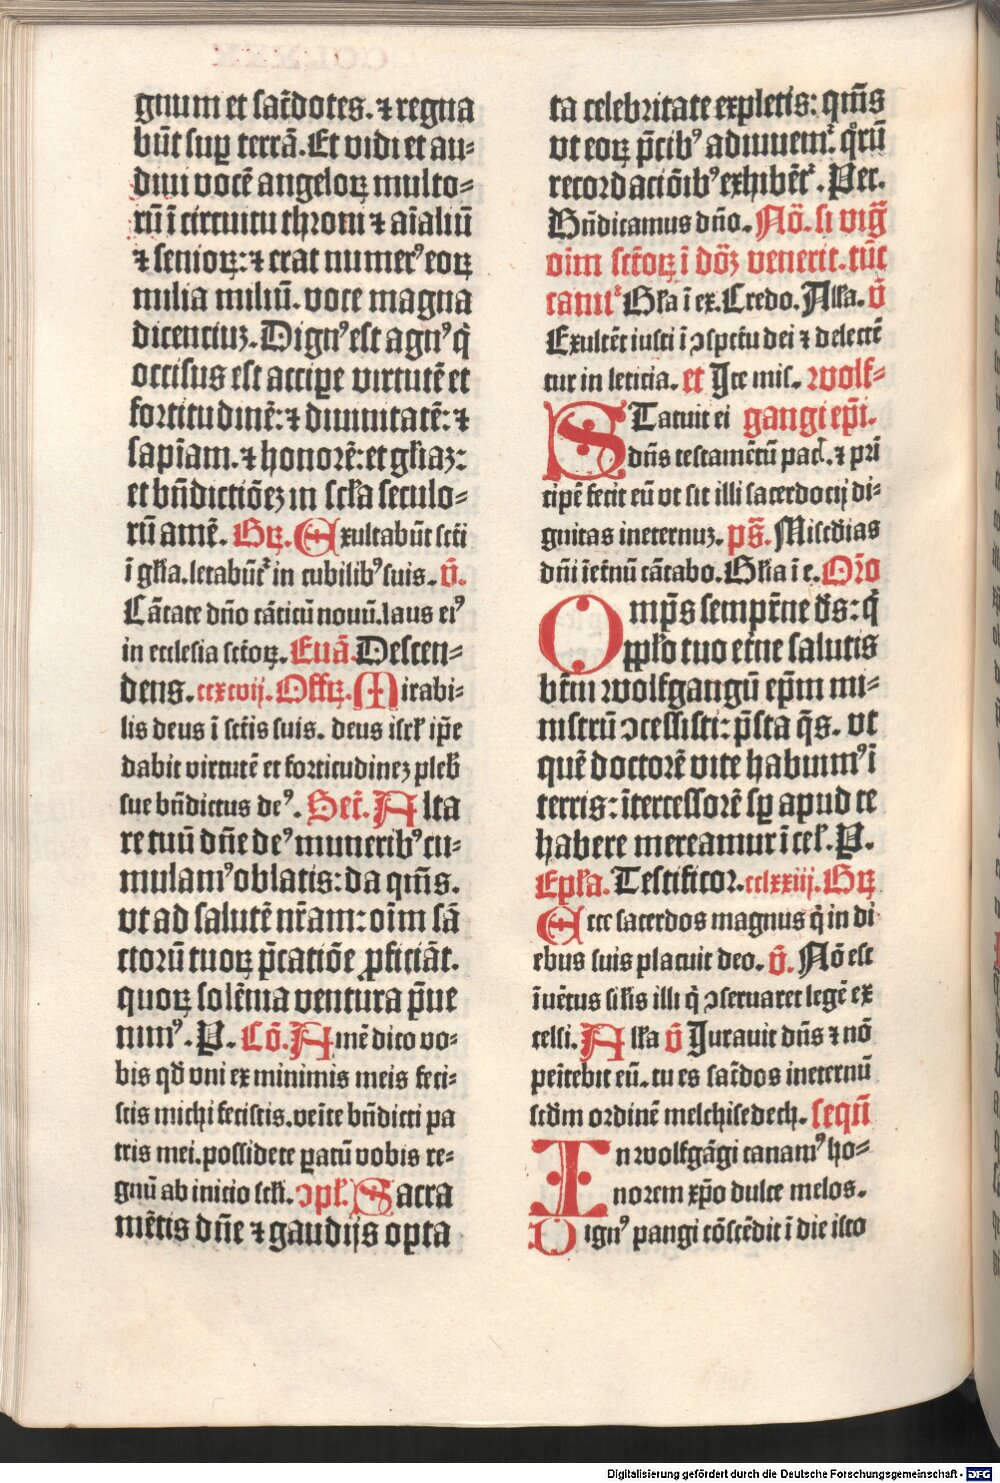 gnum et sac̄dotes. ⁊ regna
būt suꝑ terrā. Et vidi et au-
diui vocē angeloꝝ multo-
rū ī circuitu throni ⁊ aīaliū
⁊ senioꝝ: ⁊ erat numerꝰ eoꝝ
milia miliū. voce magna
dicentiuꝫ. Dignꝰ est agnꝰ q̇
occisus est accipe virtutē et
fortitudinē: ⁊ diuinitatē: ⁊
sapīam. ⁊ honorē: et gl̄iaꝫ:
et bn̄dictiōeꝫ in scl̄a seculo-
rū amē. Gꝝ. Exultabūt sctī
ī gl̄ia. letabūt᷑ in cubilibꝰ suis. v̄.
Cātate dn̄o cāticū nouū. laus eiꝰ
in ecclesia sctoꝝ. Euā. Descen-
dens. ccxcvij. Offꝝ. Mirabi-
lis deus ī sctīs suis. deus isrl̄ ip̄e
dabit virtutē et fortitudineꝫ pleb̄
sue bn̄dictus deꝰ. Secr̄. Alta
re tuū dn̄e deꝰ muneribꝰ cu-
mulamꝰ oblatis: da qm̄s.
vt ad salutē nr̄am: oīm sā
ctorū tuoꝝ p̄catiōe ꝓficiāt.
quoꝝ solēnia ventura p̄ue
nimꝰ. P. Cō. Amē dico vo-
bis qd̄ vni ex minimis meis feci-
stis michi fecistis. venīte bn̄dicti pa
tris mei. possidete ꝑatū vobis re-
gnū ab inicio scl̄i. ↄpl̄. Sacra
mētis dn̄e ⁊ gaudijs opta
ta celebritate expletis: qm̄s
vt eoꝝ p̄cibꝰ adiuuem᷑. q̊rū
recordaciōibꝰ exhibēt᷑. Per.
Bn̄dicamus dn̄o. Nō. si vig̃
oīm sctōꝝ ī dōꝫ venerit. tūc
canit᷑ Gl̄a ī ex. Credo. Alla. v̄
Exultēt iusti ī ↄspctū dei ⁊ delectē
tur in leticia. et Ite mis. wolf-
STatuit ei gangi ep̄i.
dn̄s testamētū pac̄. ⁊ prī
cipē fecit eū vt sit illi sacerdocij di-
gnitas ineternuꝫ. ps̄. Misc̄dias
dn̄i īet̄nū cātabo. Gl̄ia ī e. Or̄o
Omp̄s semp̄tne ds̄: q̇
ppl̄o tuo et̄ne salutis
bt̄m wolfgangū ep̄m mi-
nistrū ↄcessisti: p̄sta q̄s. vt
quē doctorē vite habuimꝰ ī
terris: ītercessorē sꝑ apud te
habere mereamur ī cel̄. P.
Epl̄a. Testificor. cclxxiij. Gꝝ
Ecce sacerdos magnus q̇ in di
ebus suis placuit deo. v̄. Nō est
īuētus sil̄is illi q̇ ↄseruaret legē ex
celsi. Alla v̄ Iurauit dn̄s ⁊ nō
penītebit eū. tu es sac̄dos ineternū
scdm̄ ordinē melchisedech. seqū
In wolfgāgi canamꝰ ho-
norem xp̄o dulce melos.
Dignꝰ pangi cōscēdit ī die isto
Digitalisierung gefördert durch die Deutsche Forschungsgemeinschaft - DFG